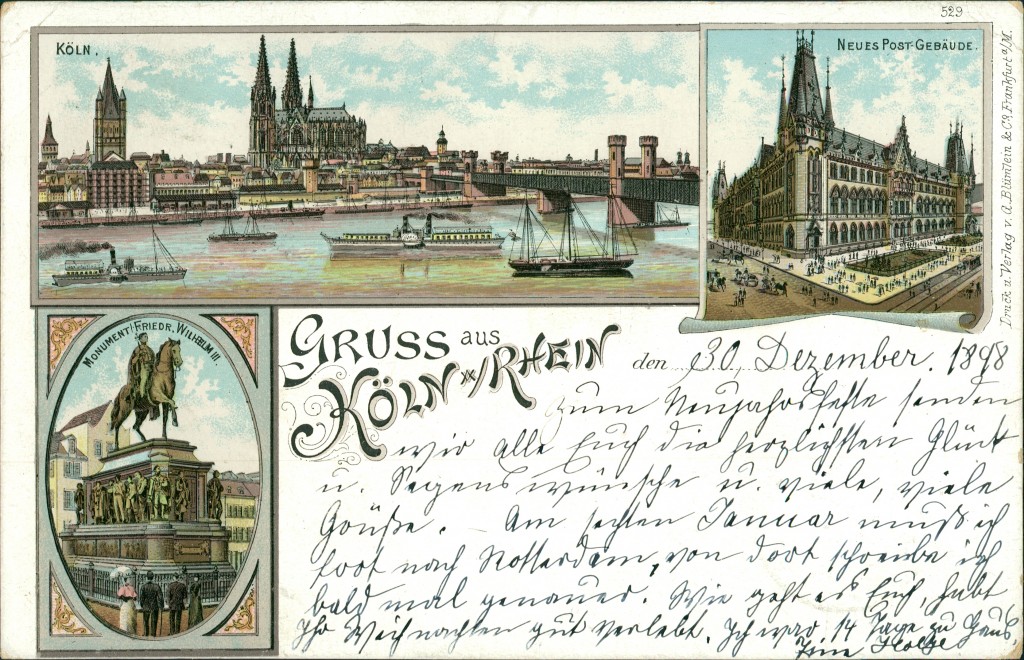 529
KÖLN.
NEUES POST-GEBÄUDE.
Druck u. Verlag v. A. Blümlein & Co. Frankfurt a/M.
MONUMENT FRIEDR. WILHELM III.
GRUSS aus
KÖLN a/RHEIN
den 30. Dezember. 1898
zum Neujahrsfeste senden
wir alle Euch die herzlichsten Glück
u. Segenswünsche u. viele, viele
Grüße. - Am sechten Januar muß ich
fort nach Rotterdam, von dort schreibe ich
bald mal genauer. Wie geht es Euch, habt
Ihr Weihnachten gut verlebt. Ich war 14 Tage zu Haus.